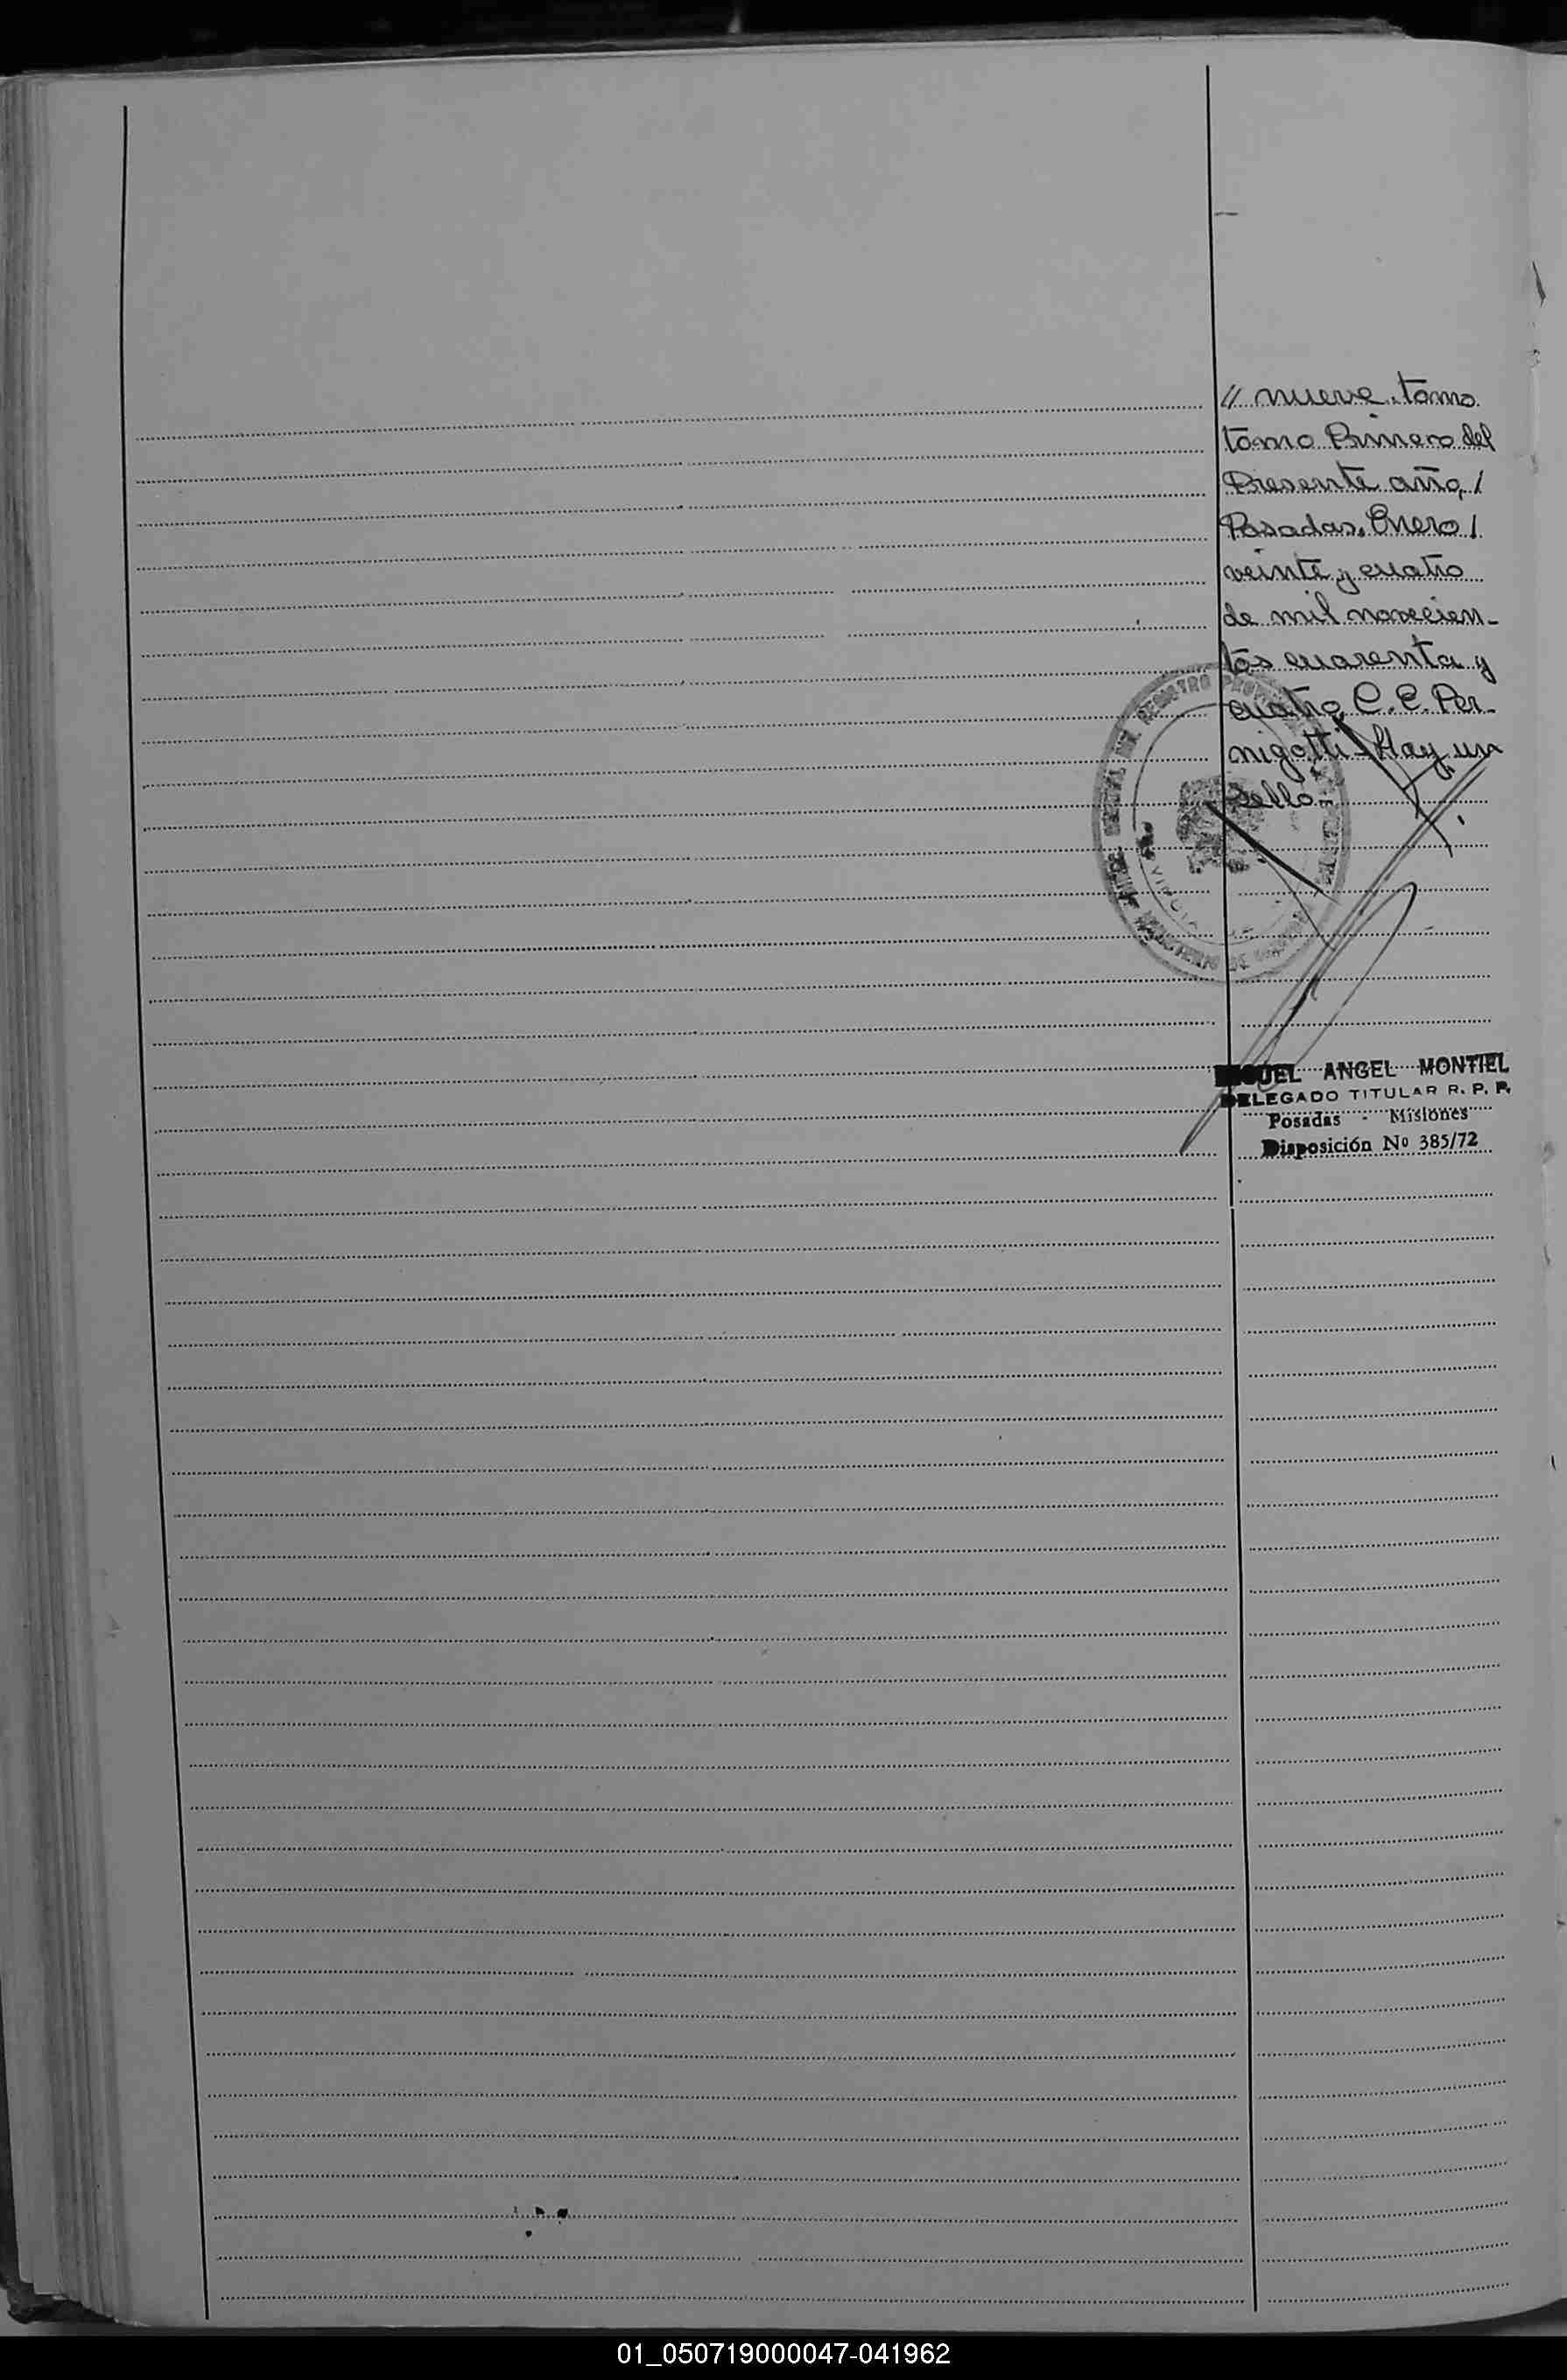 // nueve. tomo
tomo Primero del
Presente año, /
Posadas, Enero /
veinte y cuatro
de mil novecien-
tos cuarenta y
cuatro, C. C. Per-
nigotti - Hay un
sello.-
REGISTRO PROV
DE
MIGUEL ANGEL MONTIEL
DELEGADO TITULAR R. P. P.
Posadas - Misiones
Disposición Nº 385/72
01_050719000047-041962